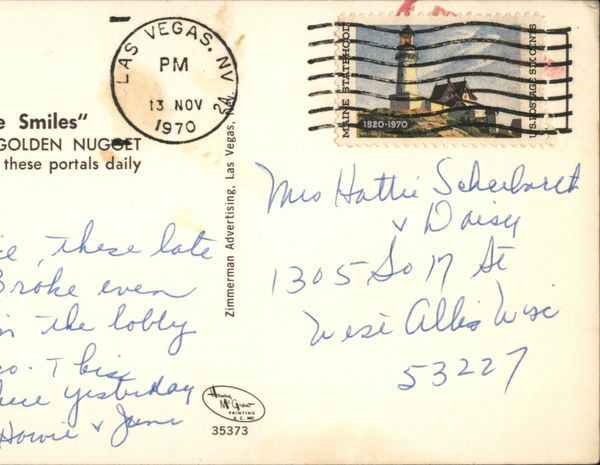 LAS VEGAS, NV
PM
13 NOV
1970
MAINE STATEHOOD
U.S. POSTAGE SIX CENTS
1820-1970
e Smiles"
GOLDEN NUGGET
these portals daily
Zimmerman Advertising, Las Vegas, Nev.
Mrs Hattie
& Daisy
1305 So 17 St
West Allis Wisc
53227
these late
Broke even
in the lobby
This
yesterday
Howie & June
Henry McGrew
PRINTING
K. C. MO.
35373